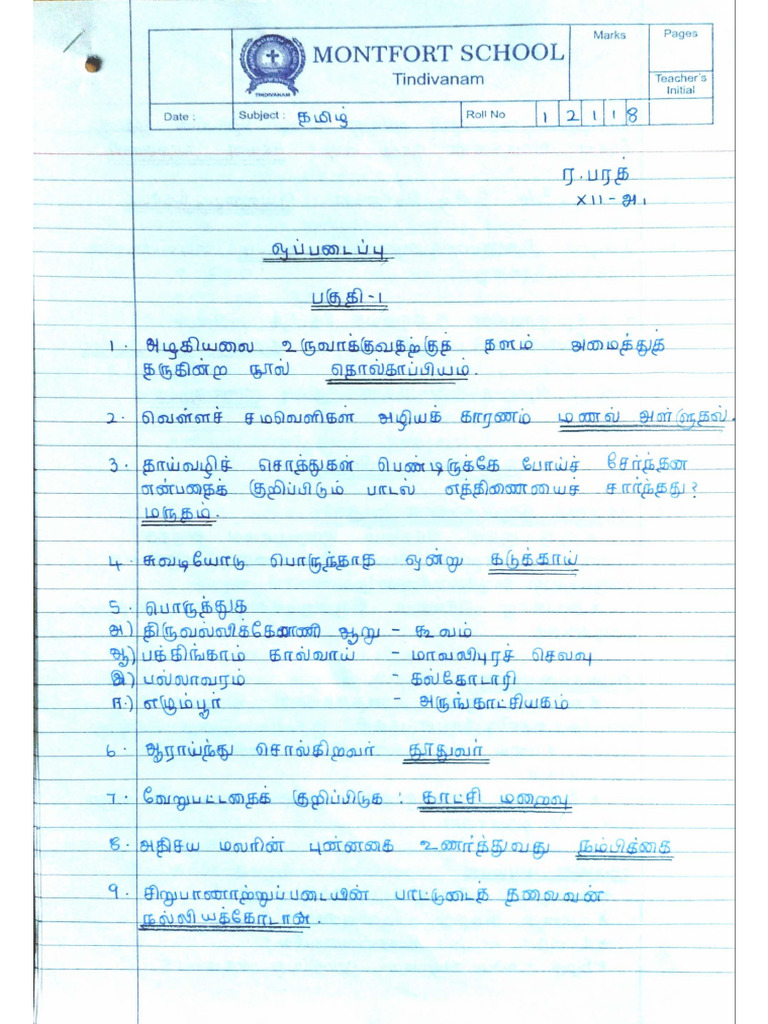 MONTFORT SCHOOL
Tindivanam
Marks
Pages
Teacher's
Initial
TINDIVANAM
Date :
Subject : தமிழ்
Roll No 1 2 1 1 8
ர. பரத்
XII - அ.
ஒப்படைப்பு
பகுதி - 1
1. அழகியலை உருவாக்குவதற்குத் தளம் அமைத்துத்
தருகின்ற நூல் தொல்காப்பியம்.
2. வெள்ளச் சமவெளிகள் அழியக் காரணம் மணல் அள்ளுதல்.
3. தாய்வழிச் சொத்துகள் பெண்டிருக்கே போய்ச் சேர்ந்தன
என்பதைக் குறிப்பிடும் பாடல் எத்திணையைச் சார்ந்தது?
மருதம்.
4. சுவடியோடு பொருந்தாத ஒன்று கடுக்காய்
5. பொருத்துக
அ) திருவல்லிக்கேணி ஆறு - கூவம்
ஆ) பக்கிங்காம் கால்வாய் - மாவலிபுரச் செலவு
இ) பல்லாவரம் - கல்கோடாரி
ஈ.) எழும்பூர் - அருங்காட்சியகம்
6. ஆராய்ந்து சொல்கிறவர் தூதுவர்
7. வேறுபட்டதைக் குறிப்பிடுக : காட்சி மறைவு
8. அதிசய மலரின் புன்னகை உணர்த்துவது நம்பிக்கை
9. சிறுபாணாற்றுப்படையின் பாட்டுடைத் தலைவன்
நல்லியக்கோடான்.